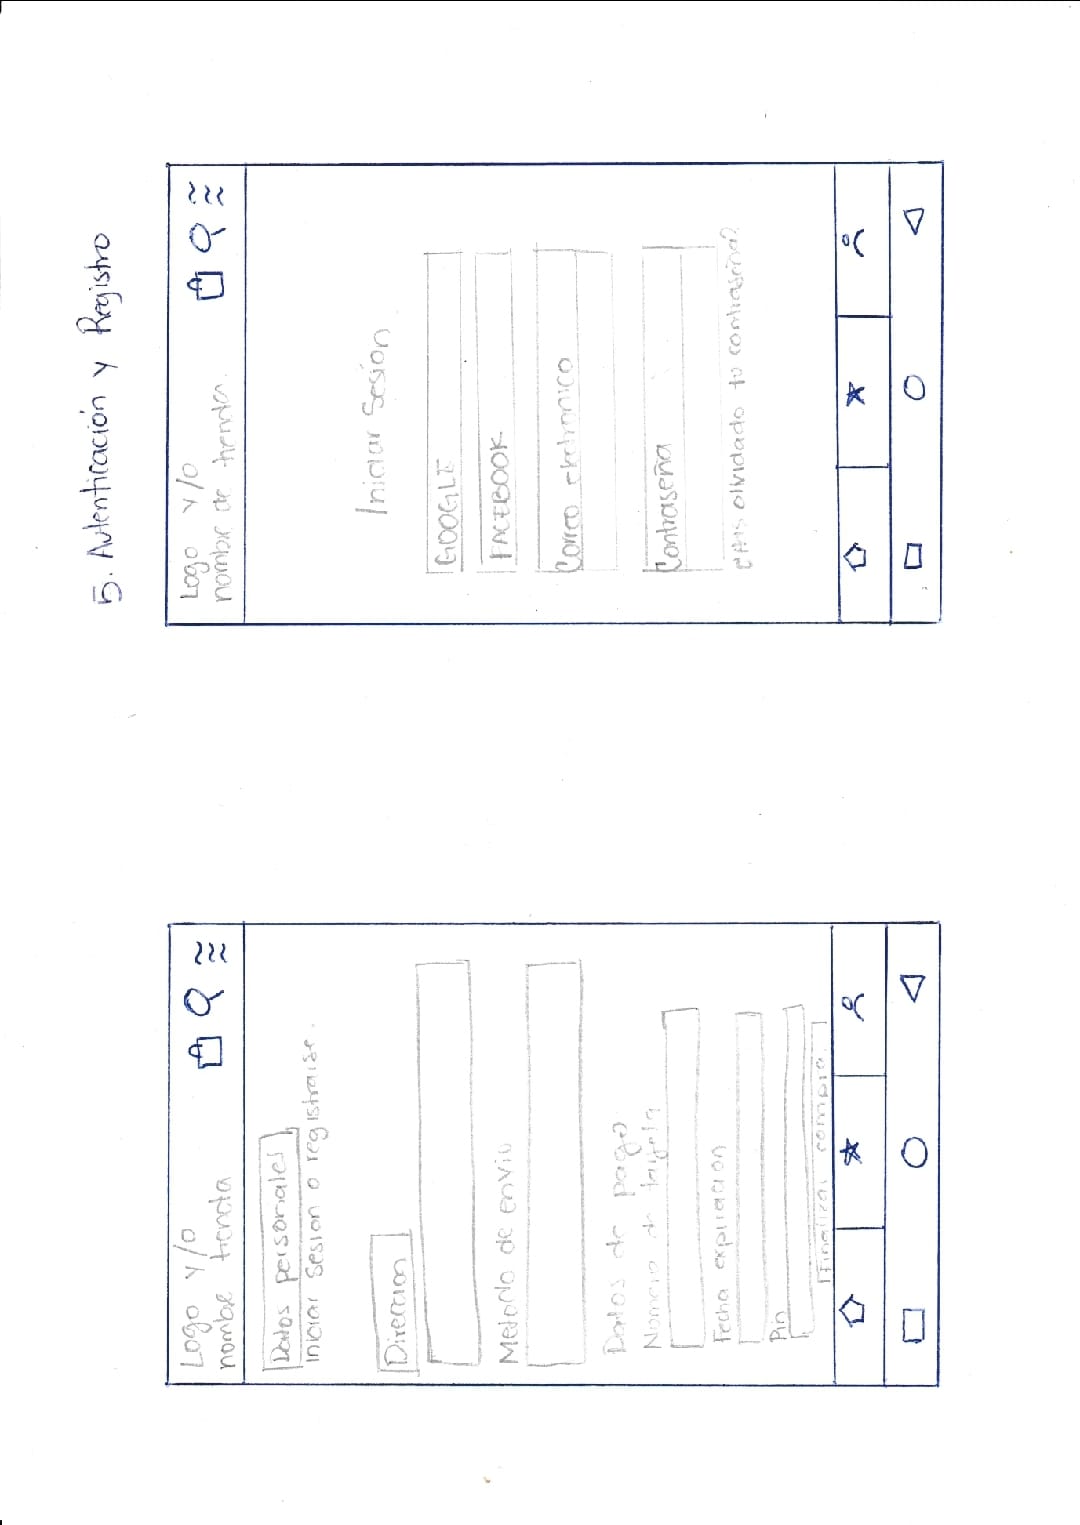 Logo y/o
nombre tienda
Datos personales
Iniciar Sesion o registrarse.
Direccion
Metodo de envio
Datos de pago
Numero de tarjeta
Fecha expiracion
Pin
Finalizar compra
5. Autenticación y Registro
Logo y/o
nombre de tienda.
Iniciar Sesión
GOOGLE
FACEBOOK
Correo electronico
Contraseña
olvidado tu contraseña?